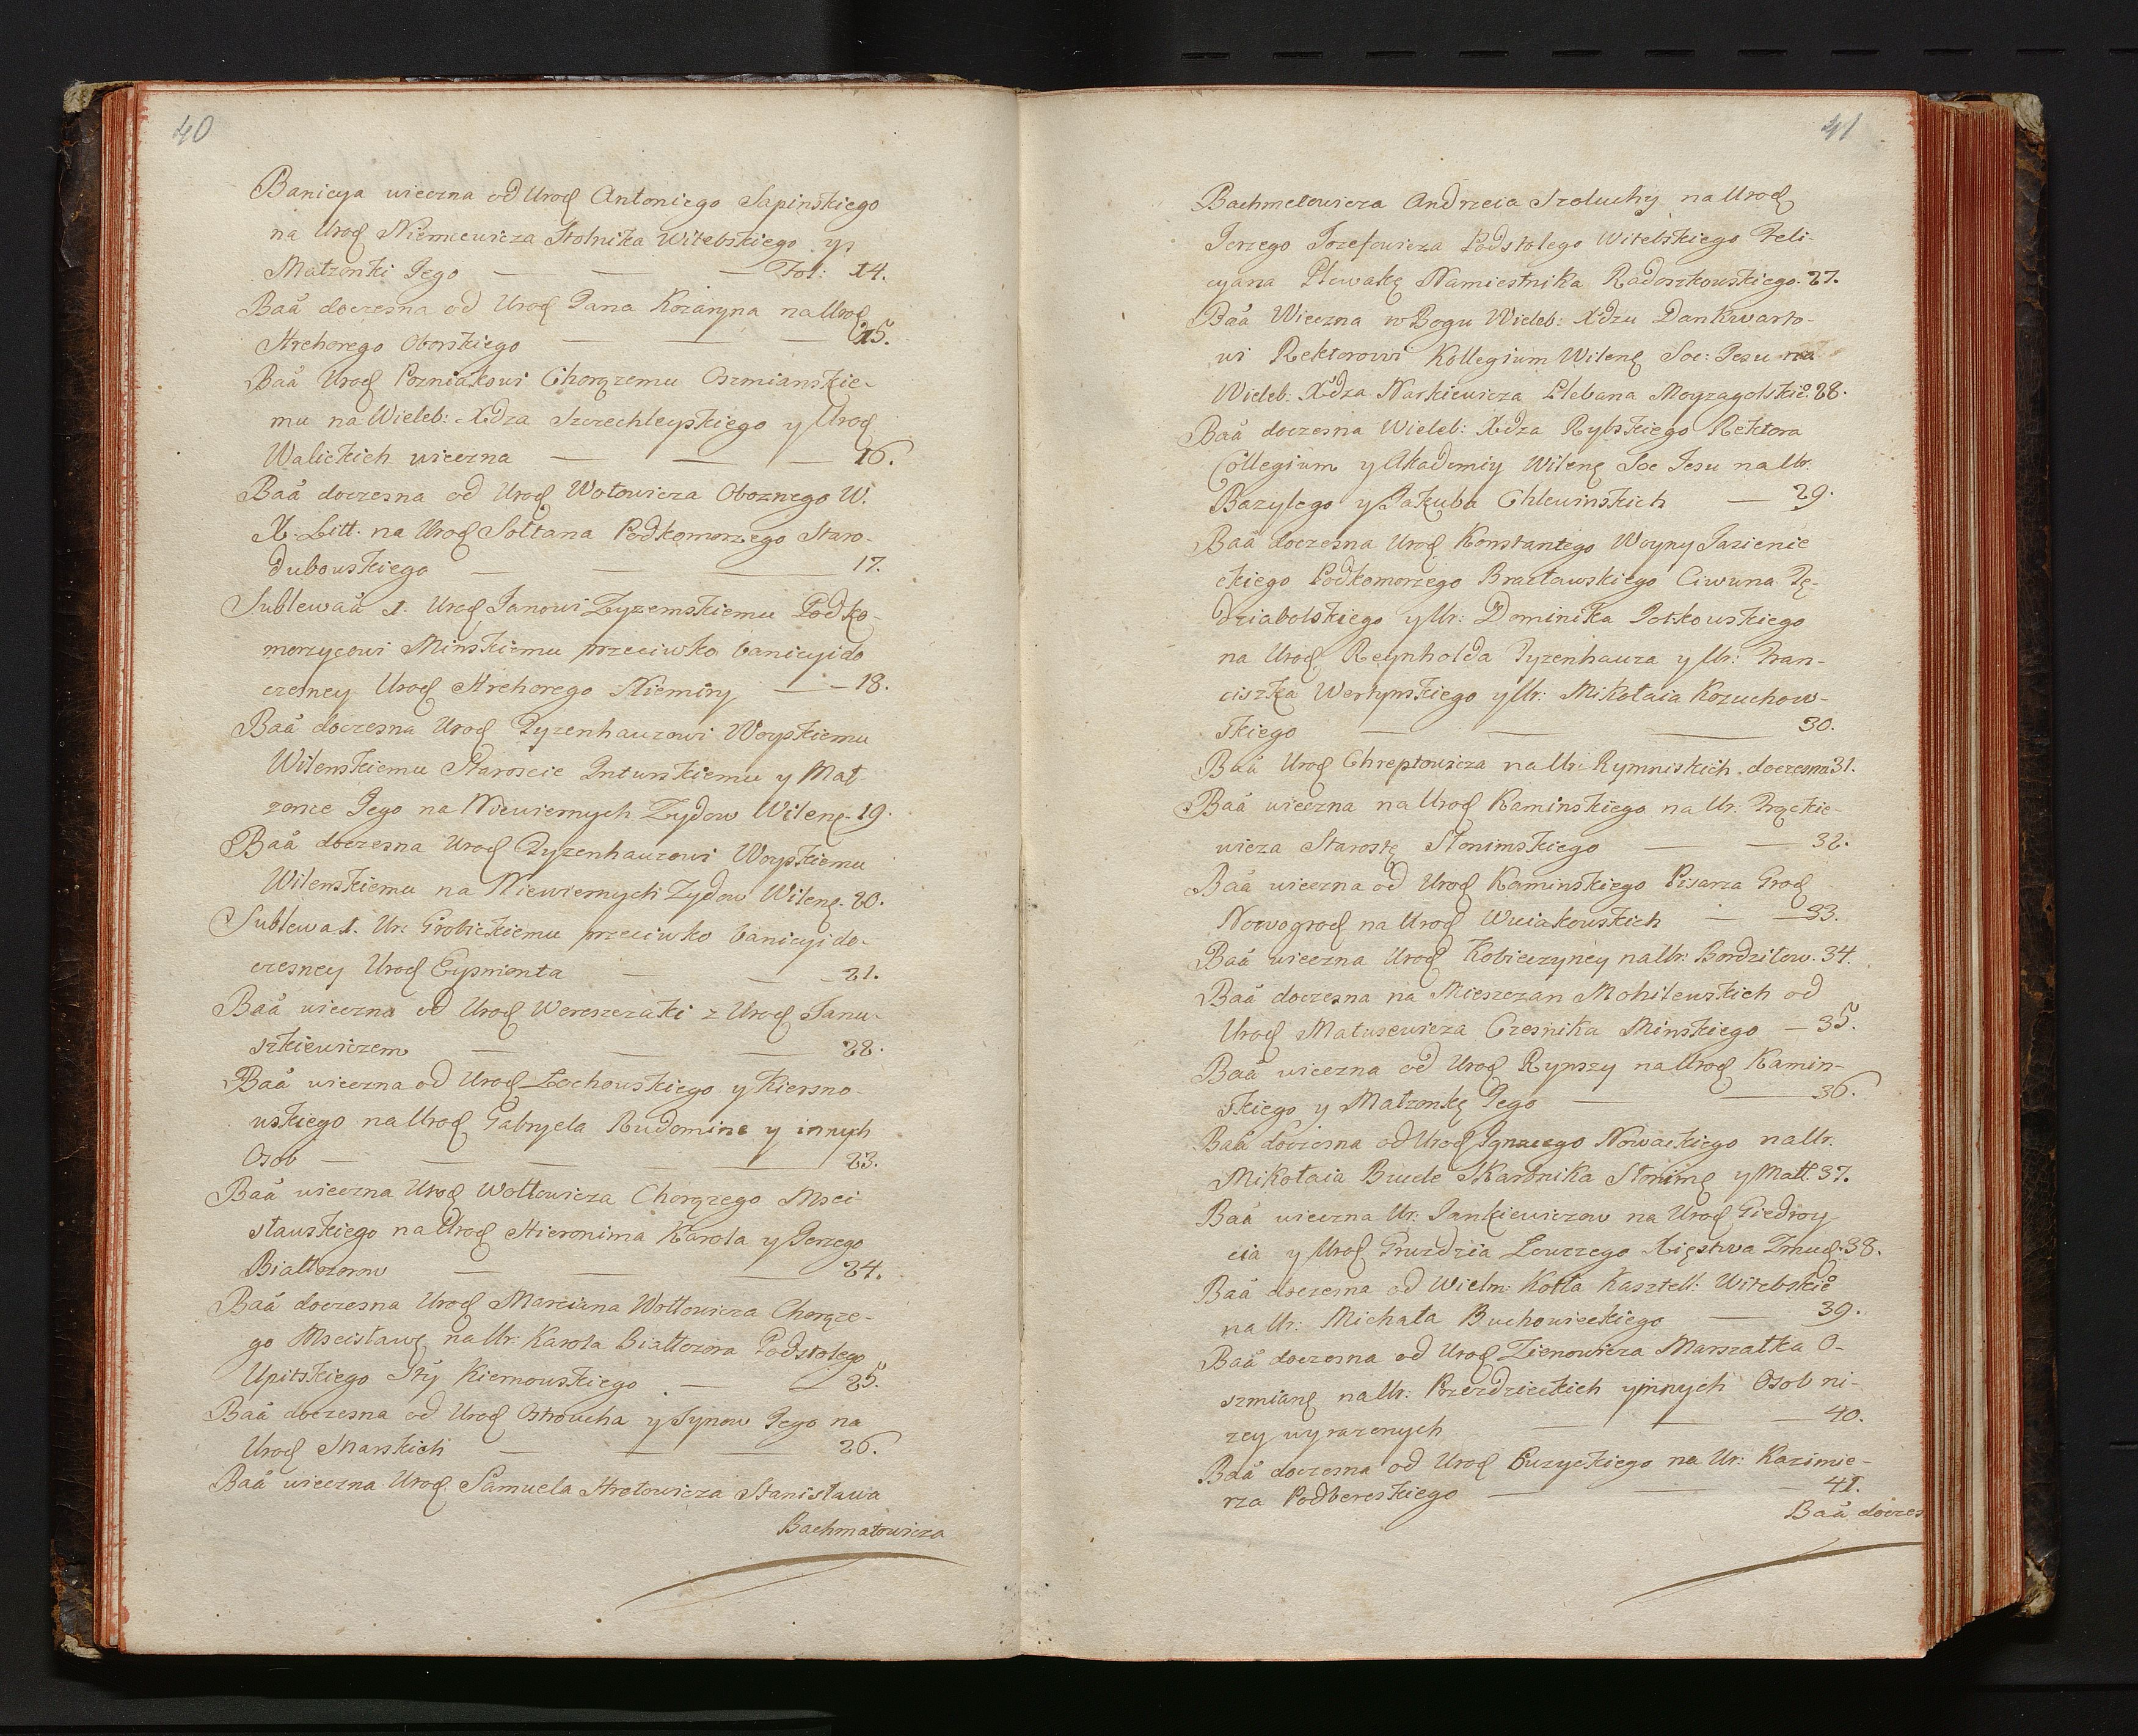 40
Banicya wieczna od Urod Antoniego Sapinskiego
na Urod Niemcewicza Stolnika Witebskiego y
Małżonki Jego — — — Fol: 14.
Baa doczesna od Urod Jana Kozaryna na Urod
Hrehorego Oborskiego — — — 15.
Baa Urod Pozniakowi Chorązemu Oszmianskie-
mu na Wieleb: Xdza Szczechleyskiego y Urod
Walickich wieczna — — — 16.
Baa doczesna od Urod Wołowicza Oboznego W.
X. Litt. na Urod Sołtana Podkomorzego Staro-
dubowskiego — — — 17.
Sublewaa 1. Urod Janowi Zyzemskiemu Podko-
morzycowi Minskiemu przeciwko banicyi do
czesney Urod Hrehorego Niemiry — — 18.
Baa doczesna Urod Tyzenhauzowi Woyskiemu
Wilenskiemu Staroscie Inturskiemu y Mał-
zonce Jego na Niewiernych Zydow Wilenę. 19.
Baa doczesna Urod Tyzenhauzowi Woyskiemu
Wilenskiemu na Niewiernych Zydow Wilenę. 20.
Sublewa 1. Ur: Grobickiemu przeciwko banicyi do-
czesney Urod Eysmonta — — — 21.
Baa wieczna od Urod Wereszczaki z Urod Janu-
szkiewiczem — — — 22.
Baa wieczna od Urod Lochowskiego y Kiersno-
wskiego na Urod Gabryela Rudomine y innych
Osob — — — — 23.
Baa wieczna Urod Wołłowicza Chorązego Msci-
sławskiego na Urod Hieronima Karola y Jerzego
Białłozorow — — — 24.
Baa doczesna Urod Marciana Wołłowicza Chorąze-
go Mscisławę na Ur: Karola Białłozora Podstolego
Upitskiego Sty Kiernowskiego — — 25.
Baa doczesna od Urod Ostroucha y Synow Jego na
Urod Snarskich — — — 26.
Baa wieczna Urod Samuela Hrotowicza Stanisława
Bachmatowicza
41
Bachmetowicza Andrzeia Szoluchy na Urod
Jerzego Jozefowicza Podstolego Witebskiego Feli-
cyana Plewakę Namiestnika Radoszkowskiego. 27.
Baa Wieczna w Bogu Wieleb: Xdzu Dankwarto-
wi Rektorowi Kollegium Wilenę Soc: Jesu na
Wieleb: Xdza Narkiewicza Plebana Moyzagolskie. 28.
Baa doczesna Wieleb: Xdza Rybskiego Rektora
Collegium y Akademiy Wilenę Soc Jesu na Ur.
Bazylego y Jakuba Chlewinskich — 29.
Baa doczesna Urod Konstantego Woyny Jasienie
ckiego Podkomorzego Bracławskiego Ciwuna Tę-
dziabolskiego y Ur: Dominika Połkowskiego
na Urod Reynholda Tyzenhauza y Ur: Fran-
ciszka Werbynskiego y Ur: Mikołaia Kozuchow-
skiego — — — 30.
Baa Urod Chreptowicza na Ur: Rymniskich doczesna 31.
Baa wieczna na Urod Kaminskiego na Ur: Frąckie-
wicza Starostę Słonimskiego — — 32.
Baa wieczna od Urod Kaminskiego Pisarza Grod
Nowogrod na Urod Wuiakowskich — — 33.
Baa wieczna Urod Kobieczyney na Ur: Bordziłow. 34.
Baa doczesna na Mieszczan Mohilewskich od
Urod Matusewicza Czesnika Minskiego — 35.
Baa wieczna od Urod Rypszy na Urod Kamin-
skiego y Małzonkę Jego — — 36.
Baa doczesna od Urod Ignacego Nowackiego na Ur.
Mikołaia Bucele Skarbnika Słonimę y Małł. 37.
Baa wieczna Ur: Jankiewiczow na Urod Giedroy
cia y Urod Gruzdzia Łowczego Xięstwa Zmud. 38.
Baa doczesna od Wielm: Kotła Kasztell: Witebskie
na Ur: Michała Buchowieckiego — 39.
Baa doczesna od Urod Zienowicza Marszałka O-
szmianę na Ur: Przezdzieckich y innych Osob ni-
zey wyrazonych — — — 40.
Baa doczesna od Urod Puzyckiego na Ur: Kazimie-
rza Podbereskiego — — — 41.
Baa doczes